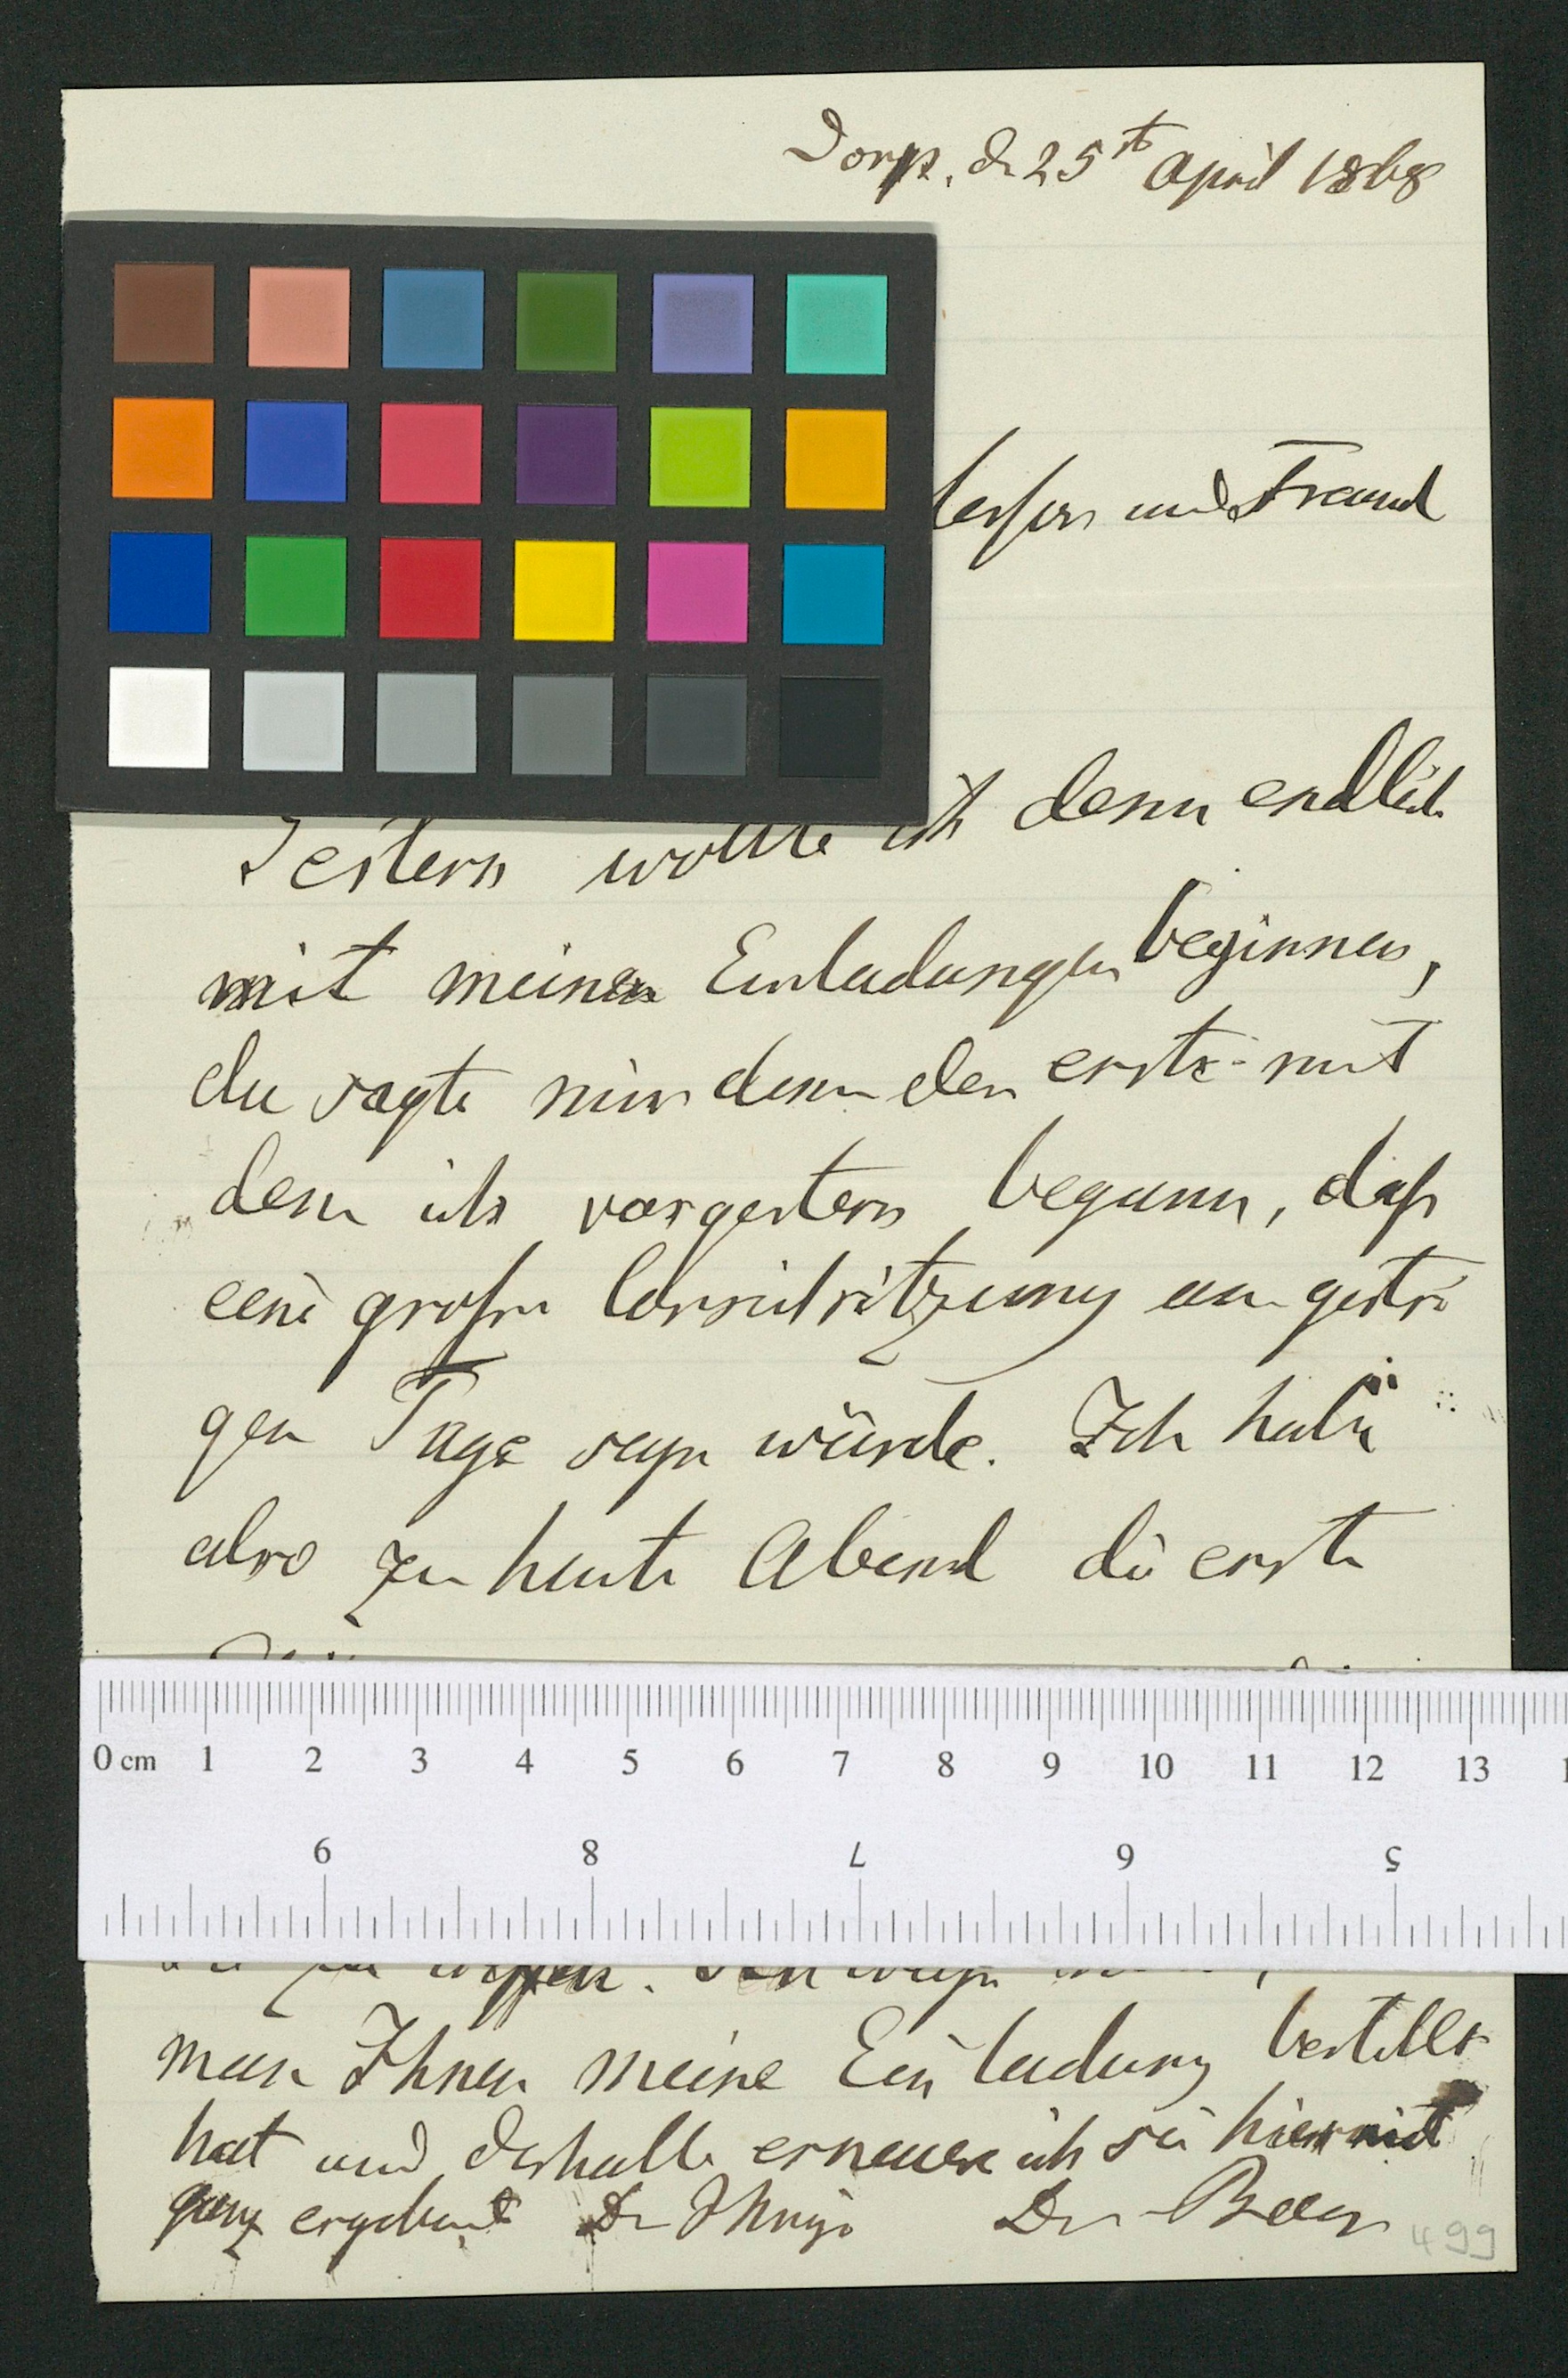 Dorp. d 25st April 1868
und Freund
Gestern wollte ich denn endlich
mit meinen Einladungen beginnen,
da sagte mir denn der erste mit
dem ich vorgestern begann, daß
eine große Conseilsitzung am gestri
gen Tage seyn würde. Ich habe
also zu heute Abend die erste
0 cm 1 2 3 4 5 6 7 8 9 10 11 12 13
9 8 7 6 5
man Ihnen meine Einladung bestellt
hat und deshalb erneuere ich sie hiermit
ganz ergebenst Dr Baer
499